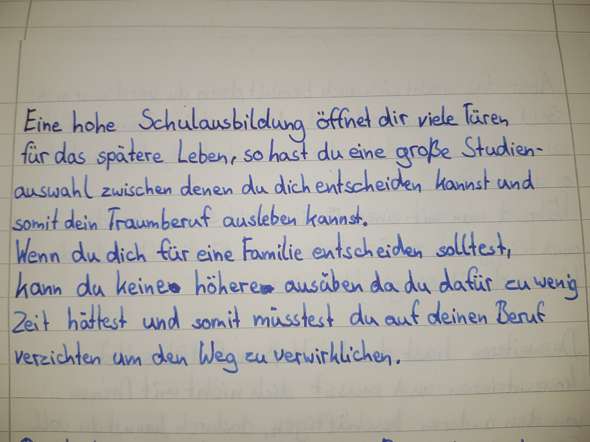 Eine hohe Schulausbildung öffnet dir viele Türen
für das spätere Leben, so hast du eine große Studien-
auswahl zwischen denen du dich entscheiden kannst und
somit dein Traumberuf ausleben kannst.
Wenn du dich für eine Familie entscheiden solltest,
kann du keine höhere ausüben da du dafür zu wenig
Zeit hättest und somit müsstest du auf deinen Beruf
verzichten um den Weg zu verwirklichen.